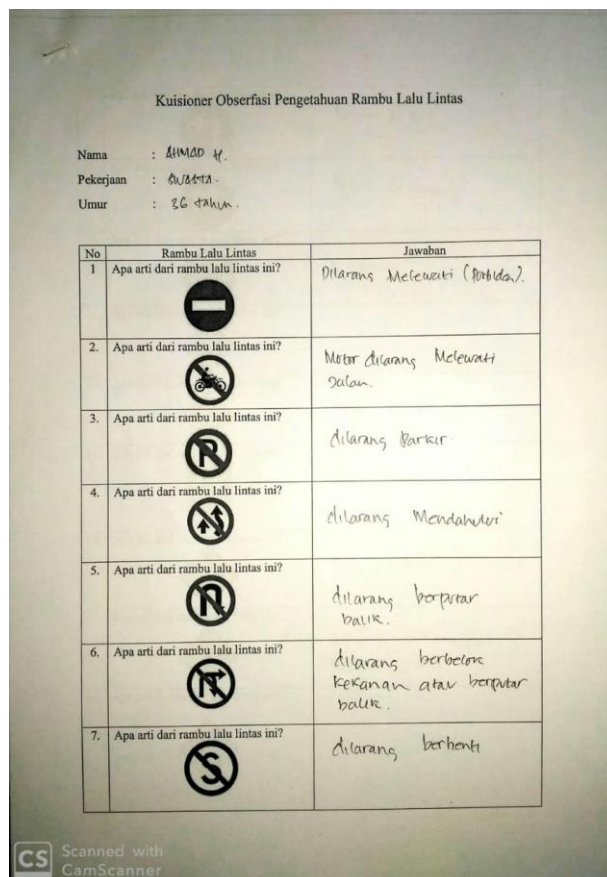 Kuisioner Obserfasi Pengetahuan Rambu Lalu Lintas
Nama : AHMAD H.
Pekerjaan : SWASTA.
Umur : 36 tahun.
No Rambu Lalu Lintas Jawaban
1 Apa arti dari rambu lalu lintas ini? Dilarang Melewati (Forbiden).
2. Apa arti dari rambu lalu lintas ini?
Motor dilarang Melewati
Jalan.
3. Apa arti dari rambu lalu lintas ini?
P
dilarang Parkir.
4. Apa arti dari rambu lalu lintas ini?
dilarang Mendahului
5. Apa arti dari rambu lalu lintas ini?
dilarang berputar
balik.
6. Apa arti dari rambu lalu lintas ini?
dilarang berbelok
kekanan atau berputar
balik.
7. Apa arti dari rambu lalu lintas ini?
S
dilarang berhenti
CS Scanned with
CamScanner